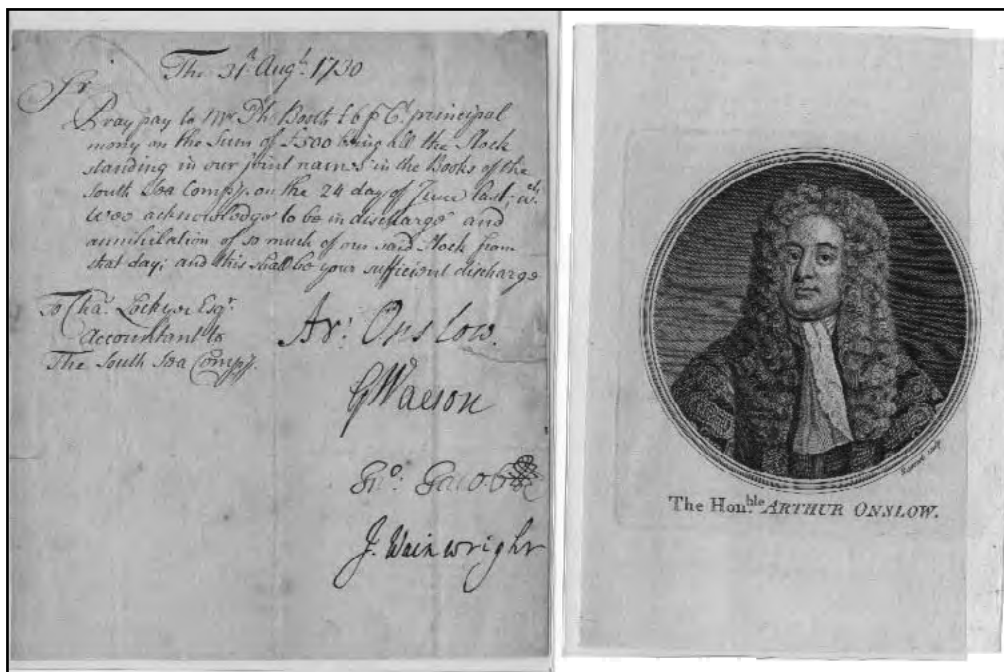 The 31st. Augt. 1730
Sr
Pray pay to Mr Ph Booth £6 p Ct. principal
mony on the Sum of £500 being all the Stock
standing in our joint names in the Books of the
South Sea Compy. on the 24 day of June last; wch.
Wee acknowledge to be in discharge and
annihilation of so much of our said Stock from
that day; and this shall be your sufficient discharge
To Cha. Lockyer Esqr.
Accountant to
The South Sea Compy.
Ar: Onslow.
G Waeson
Jno: Jacob
J. Wainwright
The Hon.ble ARTHUR ONSLOW.